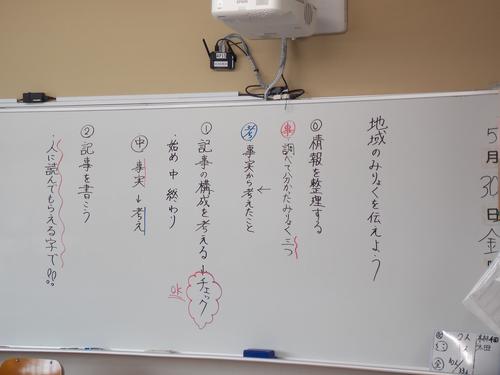 5月30日金
地域のみりょくを伝えよう
⓪情報を整理する
事 調べて分かったみりょく三つ
←
考 事実から考えたこと
①記事の構成を考える→チェック
OK
・始め 中 終わり
中 事実→考え
②記事を書こう
・人に読んでもらえる字で!!